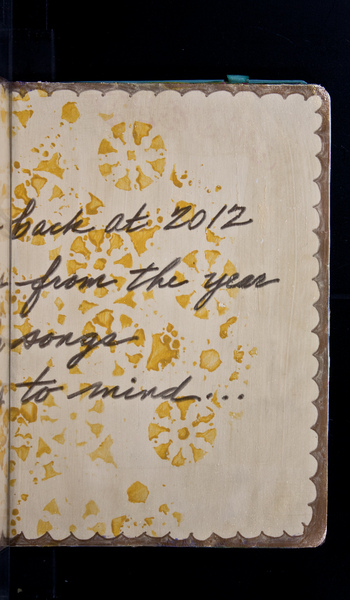 back at 2012
from the year
songs
to mind...